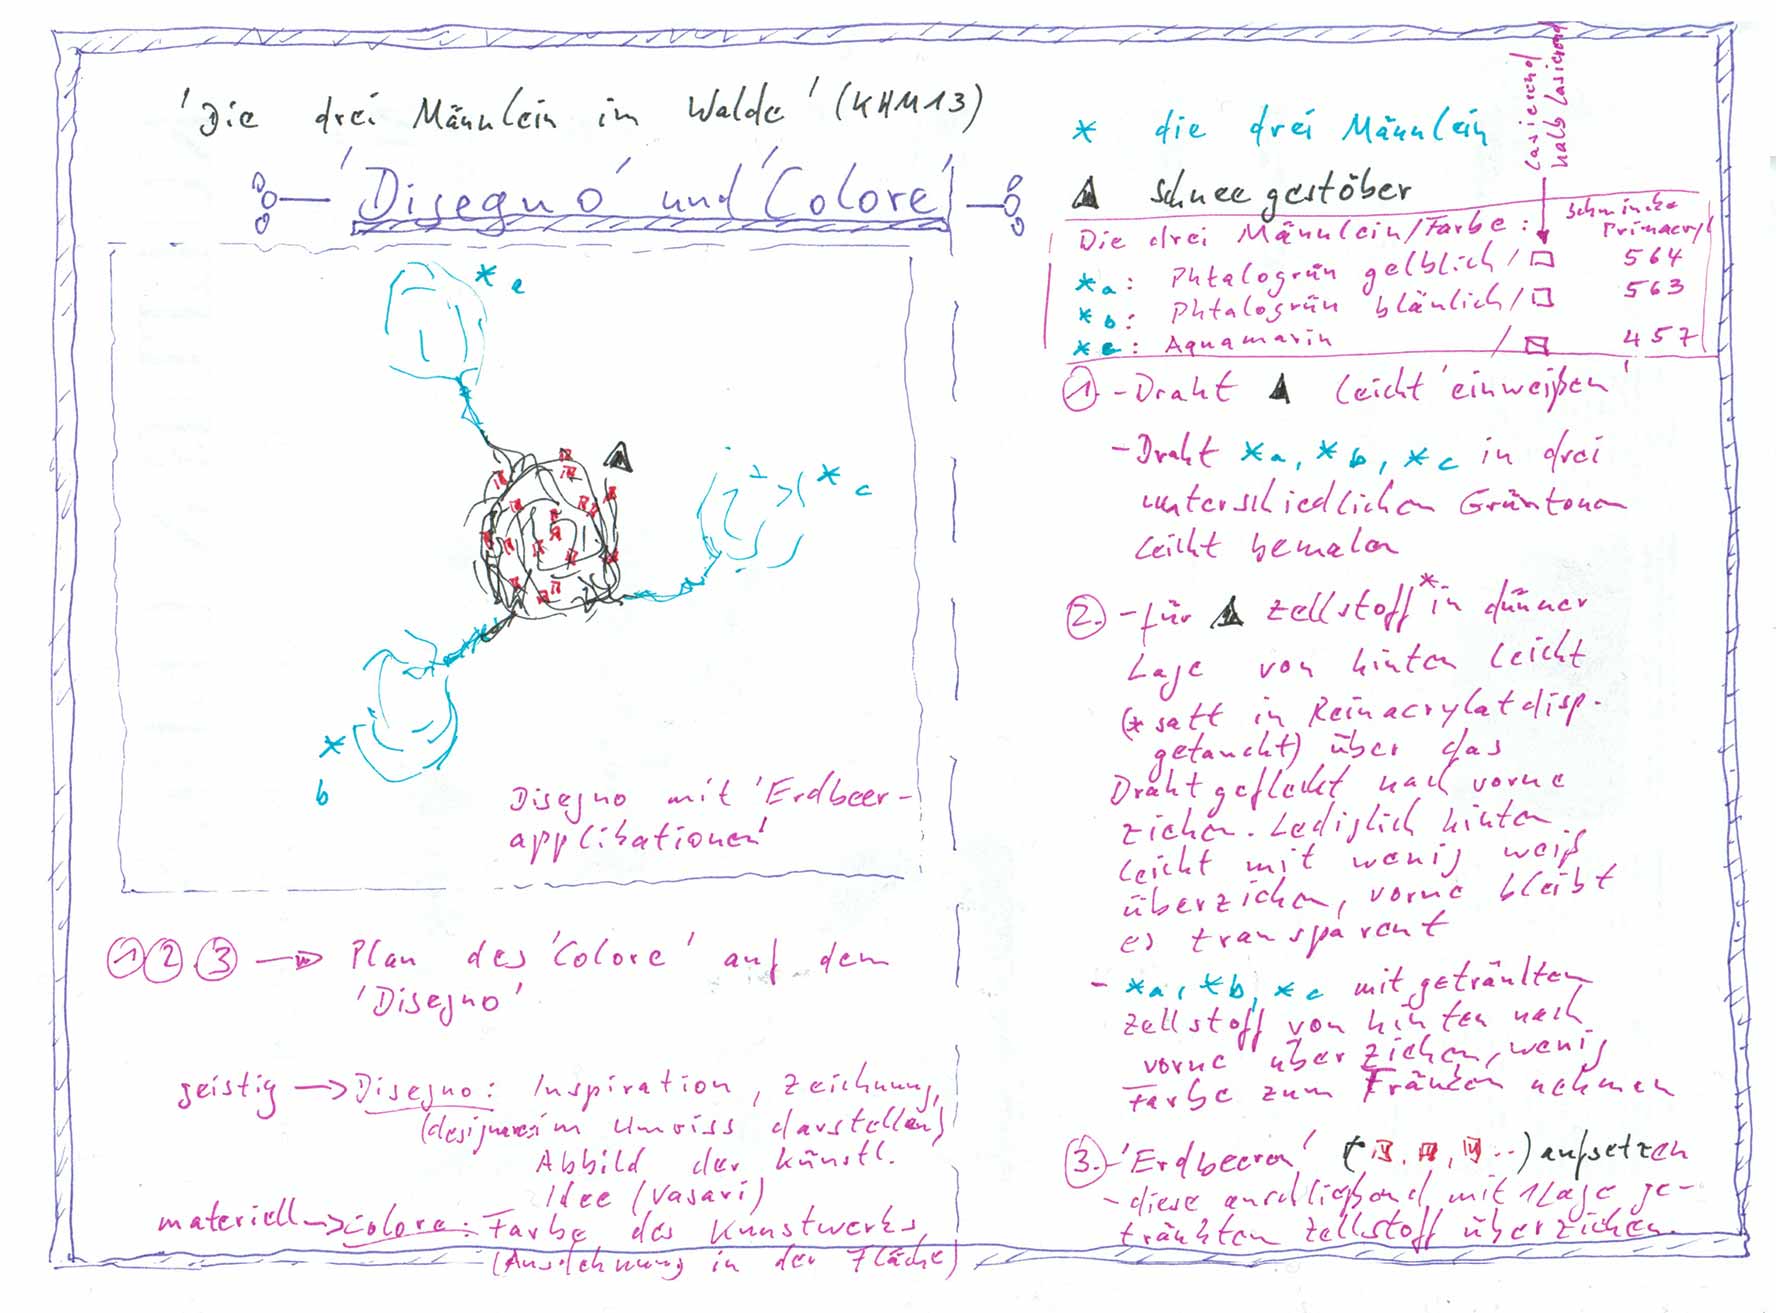 'Die drei Männlein im Walde' (KHM13)
'Disegno' und 'Colore'
* a
* c
* b
Disegno mit 'Erdbeer-
applikationen'
1 2 3 → Plan des 'Colore' auf dem
'Disegno'
geistig → Disegno: Inspiration, Zeichnung,
(designare: im Umriss darstellen)
Abbild der künstl.
Idee (Vasari)
materiell → Colore: Farbe des Kunstwerks,
(Ausdehnung in der Fläche)
* die drei Männlein
Schneegestöber
lasierend
halb lasierend
Die drei Männlein/Farbe: Schmincke
Primacryl
*a: Phtalogrün gelblich / 564
*b: Phtalogrün bläulich / 563
*c: Aquamarin / 457
1. - Draht leicht 'einweißen'
- Draht *a, *b, *c in drei
unterschiedlichen Grüntönen
leicht bemalen
2. - für Zellstoff* in dünner
Lage von hinten leicht
(* satt in Reinacrylatdisp.
getaucht) über das
Drahtgeflecht nach vorne
ziehen. Lediglich hinten
leicht mit wenig weiß
überziehen, vorne bleibt
es transparent
- *a, *b, *c mit getränkten
Zellstoff von hinten nach
vorne überziehen, wenig
Farbe zum Tränken nehmen
3. - 'Erdbeeren' ( , , ..) aufsetzen
- diese anschließend mit 1 Lage ge-
tränkten Zellstoff überziehen.